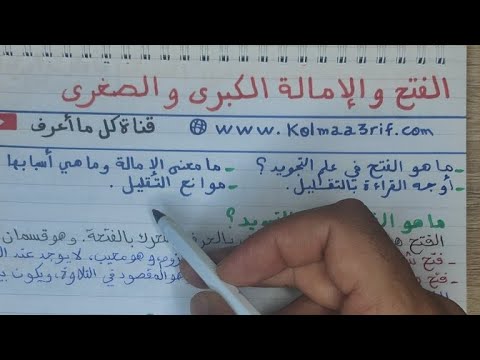 الفتح والإمالة الكبرى والصغرى
قناة كل ما أعرف www.Kolmaa3rif.com
- ما هو الفتح في علم التجويد؟ - ما معنى الإمالة وما هي أسبابها
- أوجه القراءة بالتقليل. - موانع التقليل.
ما هو التجويد؟
الفتح الحرف بالفتحة. وهو قسمان
- فتح وهو معيب، لا يوجد عند
- فتح هو المقصود في التلاوة، ويكون